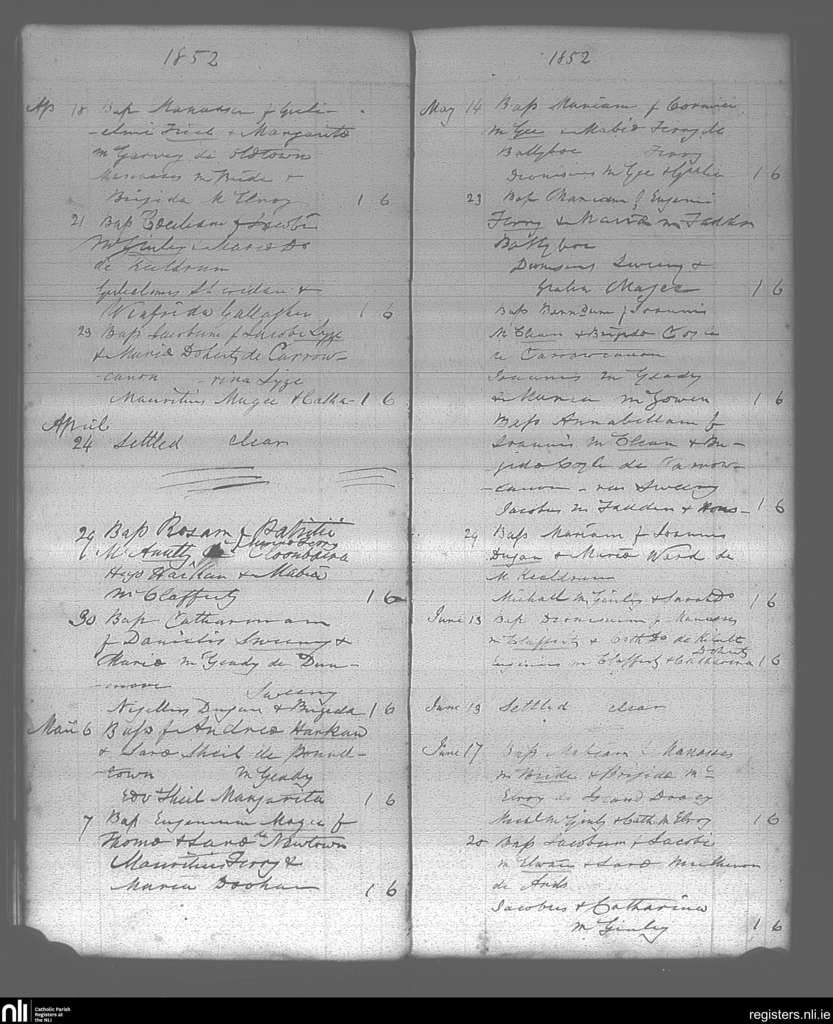 1852
Ap 18 Bap Manassem f Guli-
-elmi Friel & Margarita
McGarvey de Oldtown
Manasses McBride &
Brigida McElroy 1 6
21 Bap Ceciliam f Jacobi
McGinley & Maria Do
de Keeldrum
Gulielmus &
Winfrida Gallagher 1 6
23 Bap Jacobum f Jacobi Lyge
& Maria Doherty de Carrow-
-canon -rina Lyge
Mauritius Magee & Catha- 1 6
April
24 Settled clear
29 Bap Rosam f Patritii
McAnulty Cloonbarra
Hugo Harkan & Mabia
McClafferty 1 6
30 Bap Catharinam
f Danielis Sweeny &
Maria McGeady de Dun-
-more Sweeny
Nigellus Dugan & Brigida 1 6
Maii 6 Bap f Andrea Harkan
& Sara Sheil de Pound-
-town McGeady
Edv Shiel Margarita 1 6
7 Bap Eugenium Magee f
Thoma & Sara Newtown
Mauritius Ferry &
Maria Doohan 1 6
1852
May 14 Bap Mariam f Cormici
McGee & Mabia Ferry de
Ballyboe Ferry
Dionisius McGee & Gratia 1 6
23 Bap Mariam f Eugenii
Ferry & Maria McFadden
Ballyboe
Dionisius Sweeny &
Gratia Magee 1 6
Bap f Joannis
McClean & Brigida Coyle
de Carrowcanon
Joannes McGeady
& Maria McGowen 1 6
Bap Annabellam f
Joannis McClean & Bri-
gida Coyle de Carrow-
-canon Sweeny
Jacobus McFadden & 1 6
29 Bap Mariam f Joannis
Dugan & Maria Ward de
McKealdrum
Michael McGinley & Sara Do 1 6
June 13 Bap Dionisium f Manasses
McClafferty & Cath Do de
Doherty
Eugenius McClafferty & Catharina 1 6
June 13 Settled clear
June 17 Bap f Manasses
McBride & Brigida Mc
Elroy de Island Dooey
Mical McGinley & Cath McElroy 1 6
20 Bap Jacobum f Jacobi
McElwain & Sara
de Ards
Jacobus & Catharina
McGinley 1 6
nli
Catholic Parish
Registers at
the NLI
registers.nli.ie